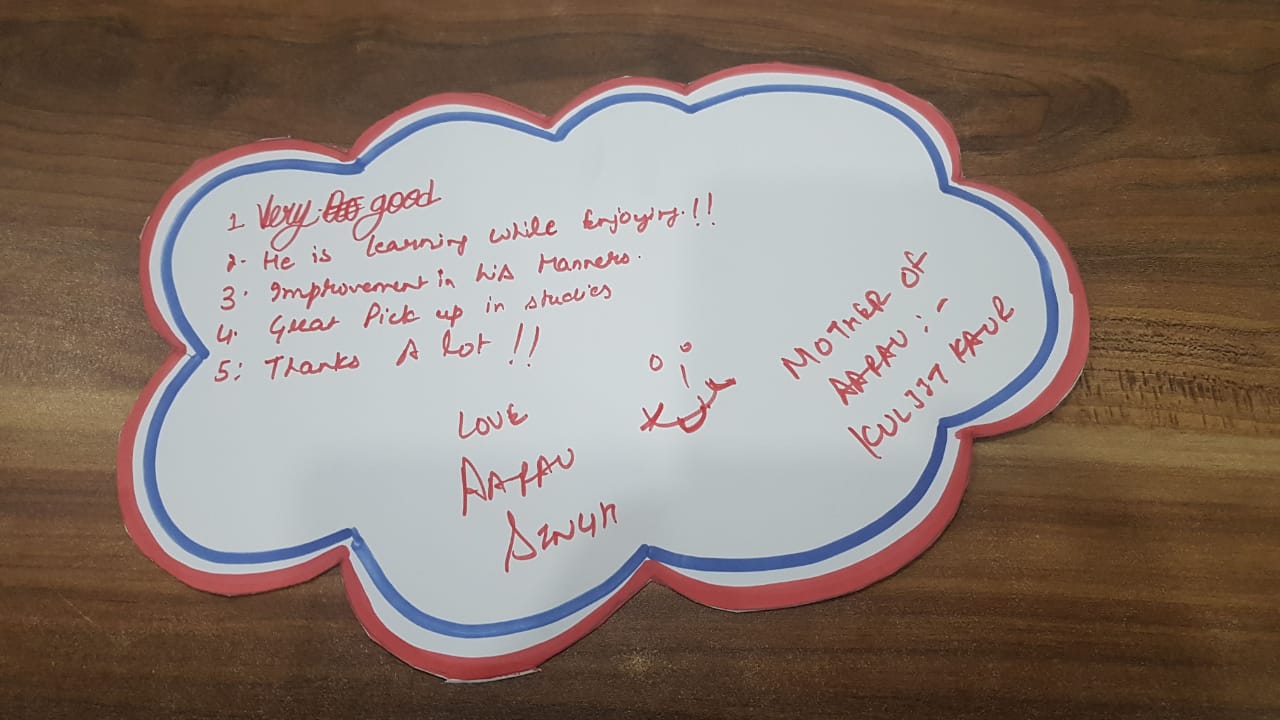 1 Very good
2. He is learning while Enjoying.!!
3. Improvement in his Manners.
4. Great Pick up in studies
5: Thanks A lot !!
LOVE
AARAV
SINGH
MOTHER OF
AARAV :-
KULJIT KAUR